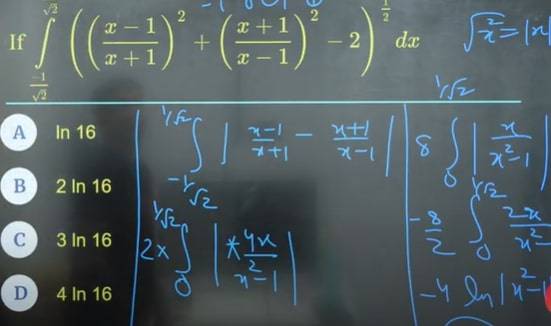 If ∫_{-1/√2}^{√2} ( ( (x − 1)/(x + 1) )² + ( (x + 1)/(x − 1) )² − 2 )^{1/2} dx
√x² = |x|
A ln 16
B 2 ln 16
C 3 ln 16
D 4 ln 16
∫_{-1/√2}^{1/√2} | (x-1)/(x+1) − (x+1)/(x-1) |
2x ∫_{0}^{1/√2} | * 4x/(x²-1) |
8 ∫_{0}^{1/√2} | x/(x²-1) |
-8/2 ∫_{0}^{1/√2} 2x/(x²-
-4 ln |x²-1